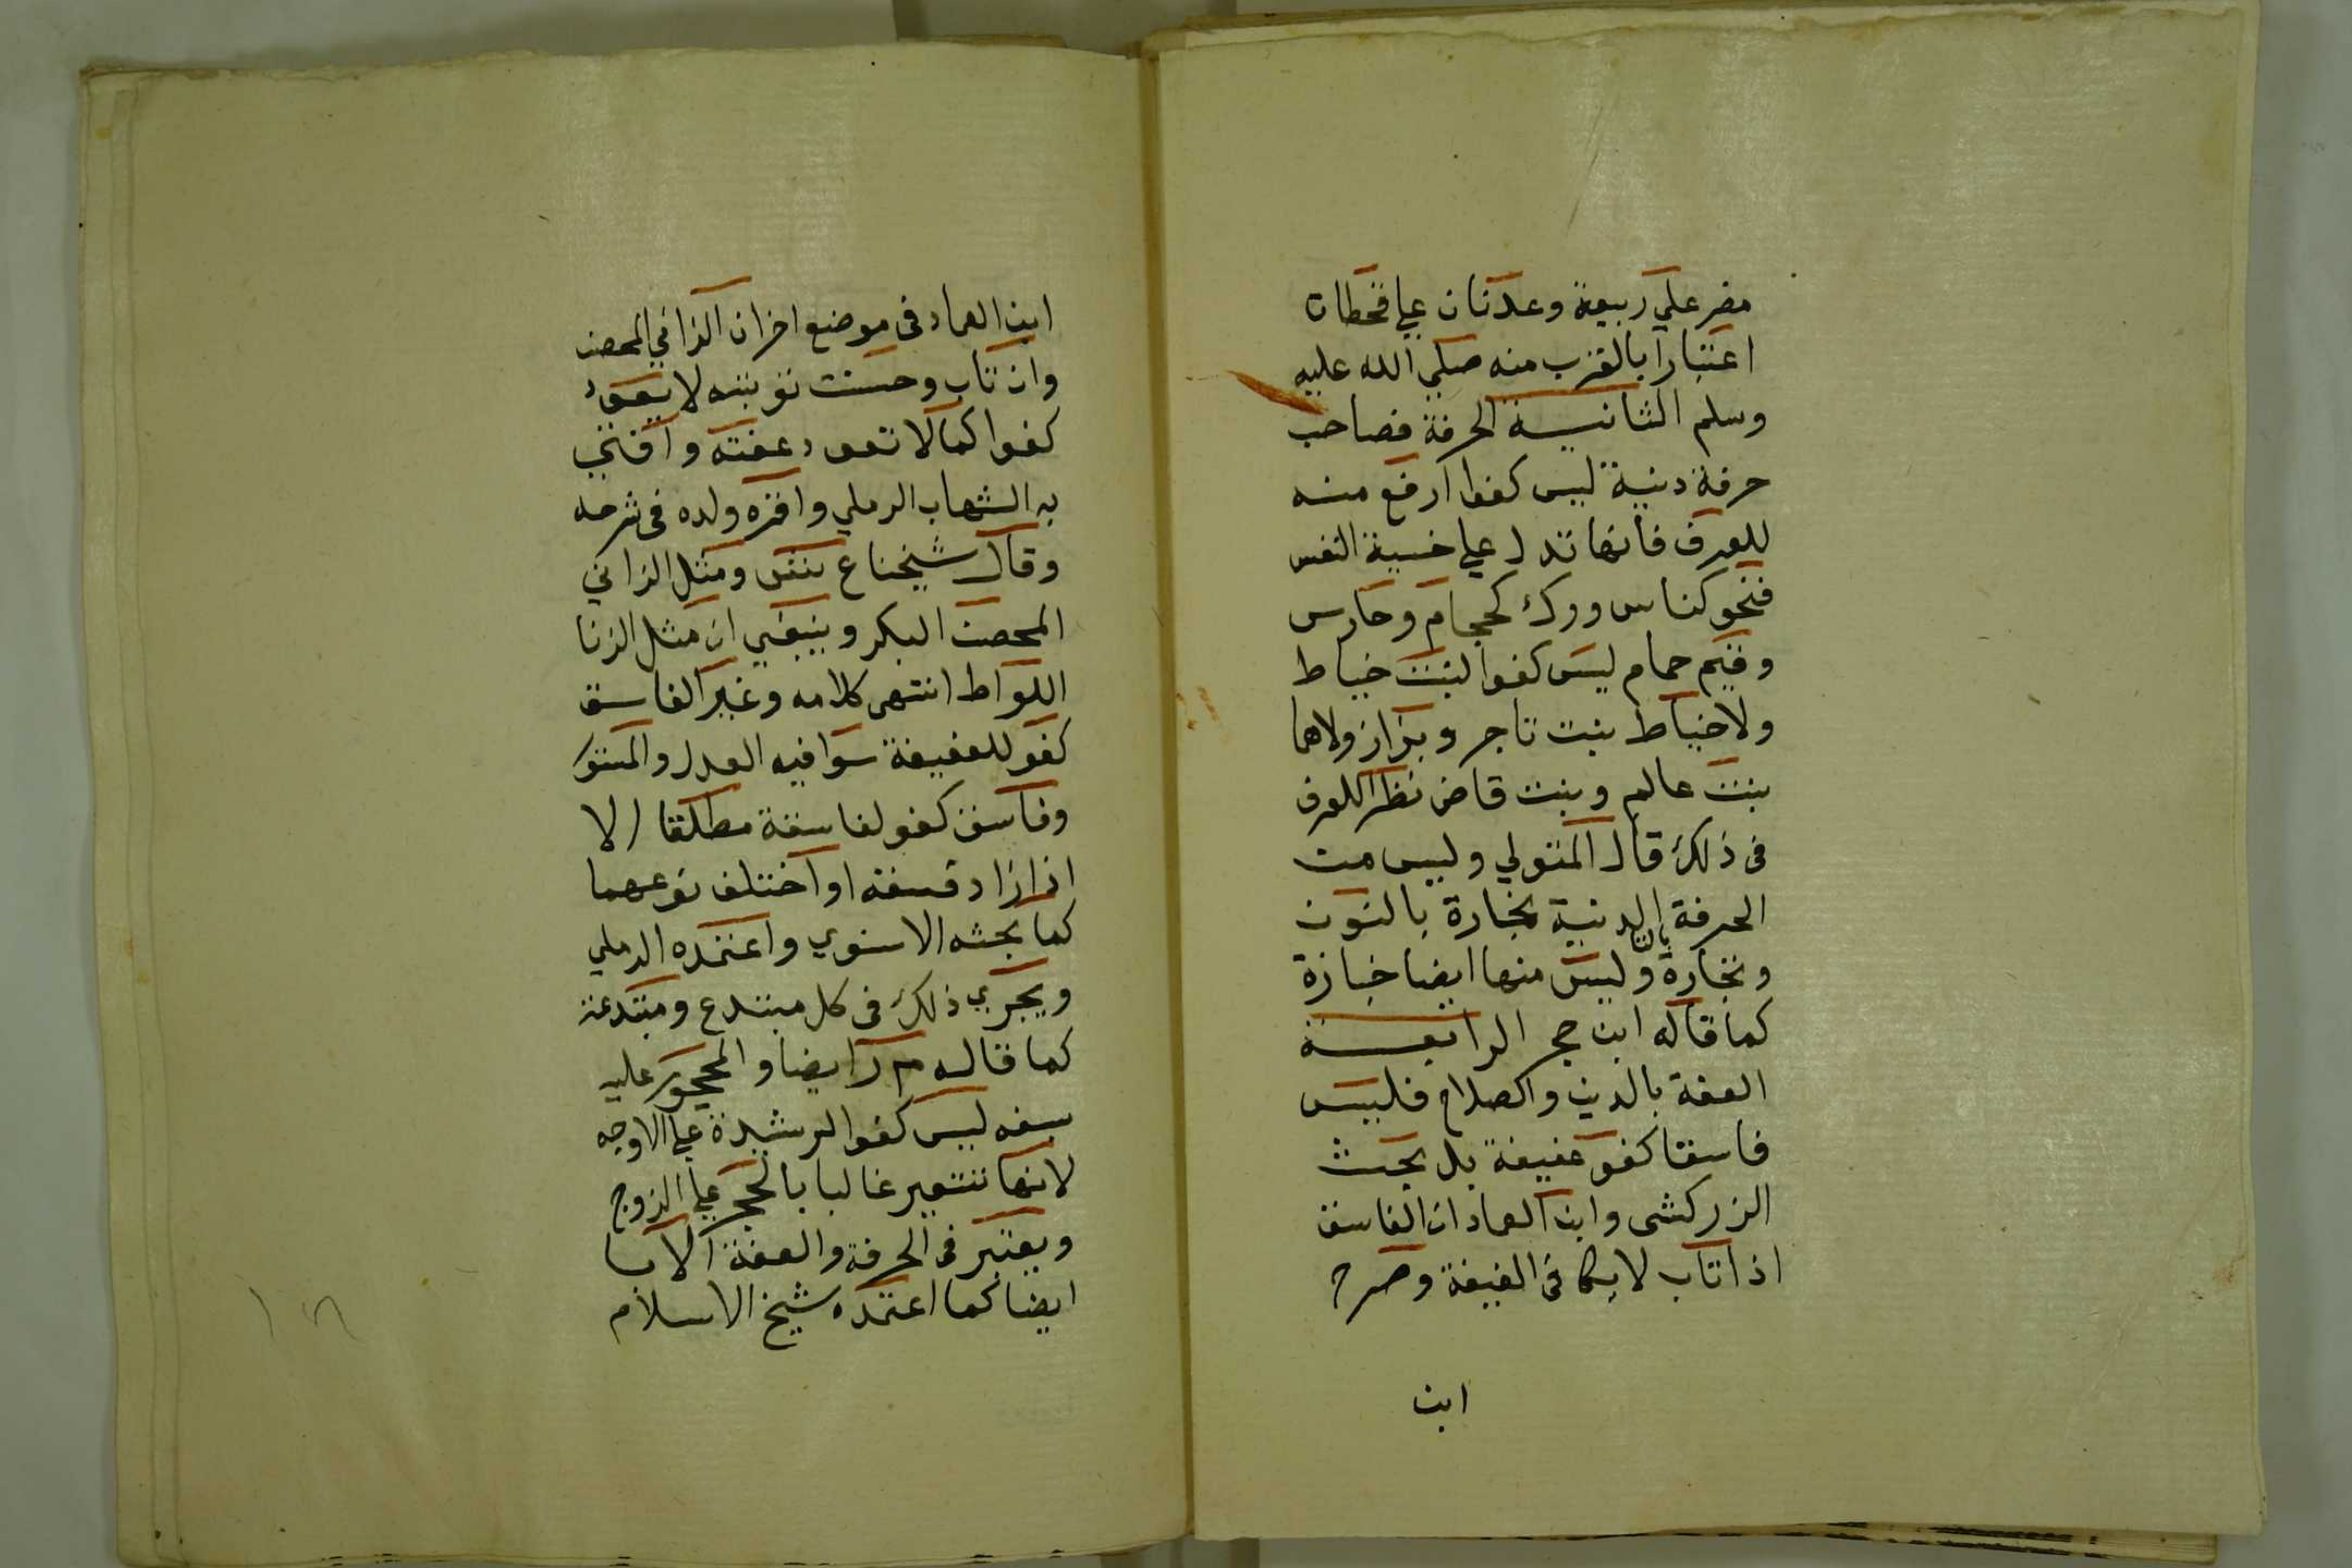 مضر علي ربيعة وعدنان علي قحطان
اعتبارا بالقرب منه صلي الله عليه
وسلم الثانية الحرفة فصاحب
حرفة دنية ليس كفوا ارفع منه
للعرف فانها تدل علي خسية النفس
فنحو كناس وورك كحجام وحارس
وقيم حمام ليس كفوا لبنت خياط
ولا خياط بنت تاجر وبزاز ولاهما
بنت عالم وبنت قاض نظرا للعرف
في ذلك قال المتولي وليس من
الحرفة الدنية نجارة بالنون
وتجارة بالتا وليس منها ايضا خبازة
كما قاله ابن حجر الرابعة
العفة بالدين والصلاح فليس
فاسقا كفو عفيفة بل بحث
الزركشى وابن العماد ان الفاسق
اذا تاب لا يكافى العفيفة وصرح
ابن
ابن العماد في موضع اخر ان الزاني المحصن
وان تاب وحسنت توبته لا يعود
كفوا كما لا تعود عفته وافتي
به الشهاب الرملي واقره ولده في شرحه
وقال شيخنا ع ش ومثل الزاني
المحصن البكر وينبغي ان مثل الزنا
اللواط انتهى كلامه وغير الفاسق
كفو للعفيفة سوا فيه العدل والمستور
وفاسق كفو لفاسقة مطلقا الا
ان زاد فسقه او اختلف نوعهما
كما بحثه الاسنوي واعتمده الرملي
ويجري ذلك في كل مبتدع ومبتدعة
كما قاله م ر ايضا والمحجور عليه
بسفه ليس كفوا لرشيدة علي الاوجه
لانها تتعير غالبا بالحجر علي الزوج
ويعتبر في الحرفة والعفة الابا
ايضا كما اعتمده شيخ الاسلام